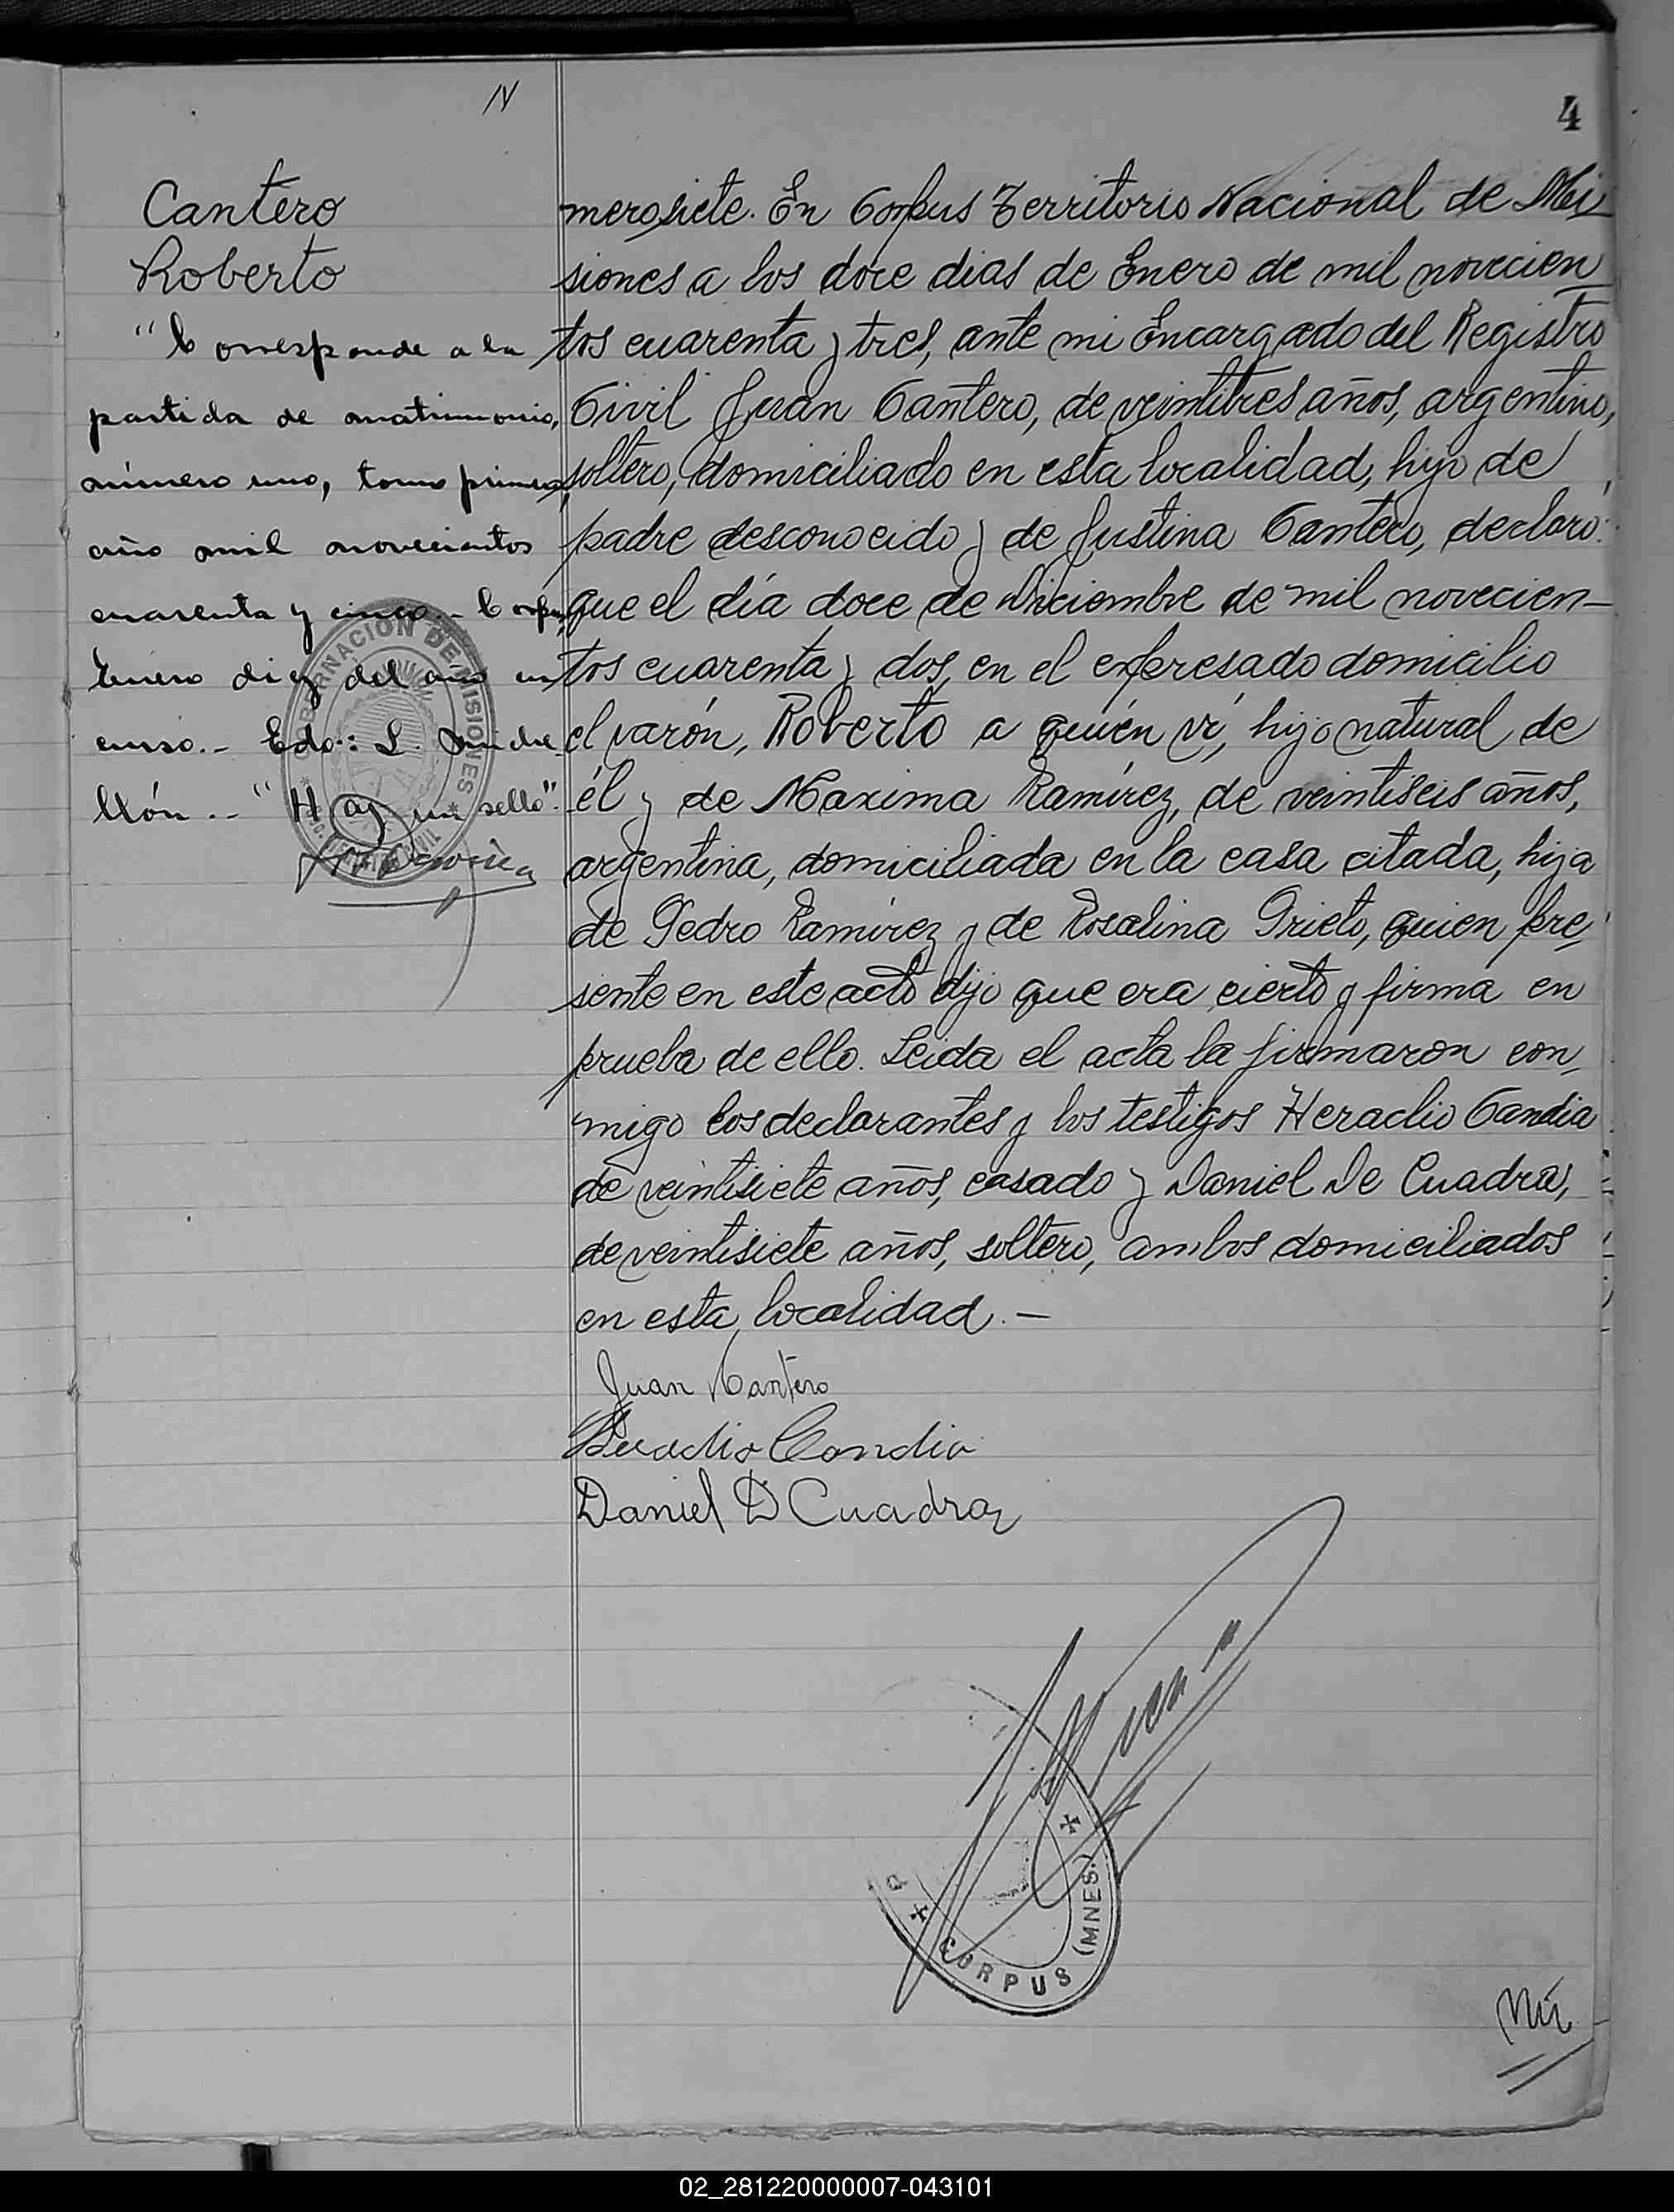 N
4
Cantero
Roberto
"Corresponde a la
partida de matrimonio,
número uno, tomo primero,
año mil novecientos
cuarenta y cinco.- Corpus,
Enero diez del año en
curso.- Edo.: L.
llón.- "Hay un sello".
GOBERNACION DE MISIONES
mero siete. En Corpus Territorio Nacional de Mi
siones a los doce dias de Enero de mil novecien
tos cuarenta y tres, ante mi Encargado del Registro
Civil Juan Cantero, de veintitres años, argentino,
soltero, domiciliado en esta localidad, hijo de
padre desconocido y de Justina Cantero, declaró:
que el día doce de Diciembre de mil novecien-
tos cuarenta y dos, en el expresado domicilio
el varón, Roberto a quién ví, hijo natural de
él y de Maxima Ramírez, de veintiseis años,
argentina, domiciliada en la casa citada, hija
de Pedro Ramírez y de Rosalina Prieto, quien pre-
sente en este acto dijo que era cierto y firma en
prueba de ello. Leida el acta la firmaron con-
migo los declarantes y los testigos Heraclio Candia
de veintisiete años, casado y Daniel De Cuadra,
de veintisiete años, soltero, ambos domiciliados
en esta localidad.-
Juan Cantero
Heraclio Candia
Daniel D Cuadra
CORPUS (MNES.)
Nú
02_281220000007-043101